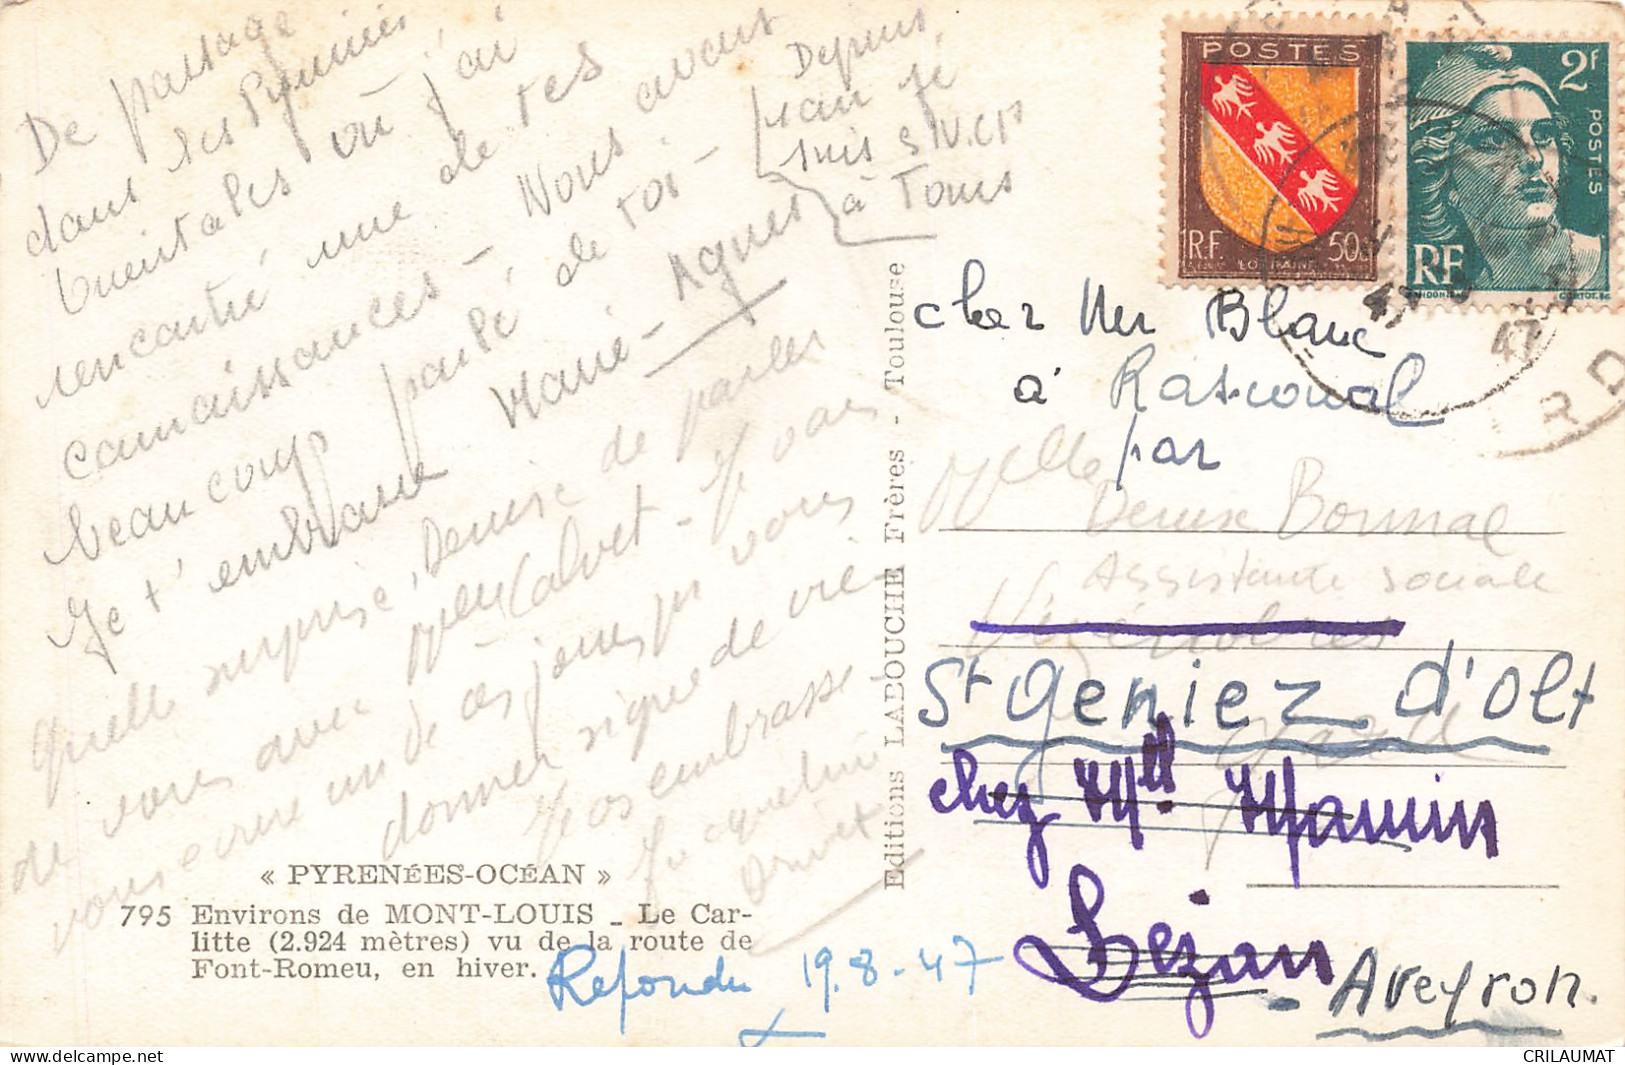 De passage
dans les Pyrénées
Orientales où j'ai
rencontré une de tes
connaissances - Nous avons
beaucoup parlé de toi -
Je t'embrasse Marie-Agnès
Depuis
1 an je
suis S.N.C.F
à Tours
Quelle surprise, Denise de parler
de vous avec Melle Calvet - Je vais
vous écrire un de ces jours pr vous
donner signe de vie -
Je os embrasse -
Jacqueline
« PYRENÉES-OCÉAN »
795 Environs de MONT-LOUIS _ Le Car-
litte (2.924 mètres) vu de la route de
Font-Romeu, en hiver.
Répondu 19.8.47
Editions LABOUCHE Frères - Toulouse
POSTES
R.F. 50c
LORRAINE
2F
POSTES
RF
GANDON
CORTOT
47
47
RD
chez Mr Blanc
à Rascoual
par
Melle
Denise Bonnal
Assistante sociale
Vézénobres
Gard
St geniez d'olt
chez Mll Mamin
Bezan
Aveyron.
CRILAUMAT
www.delcampe.net